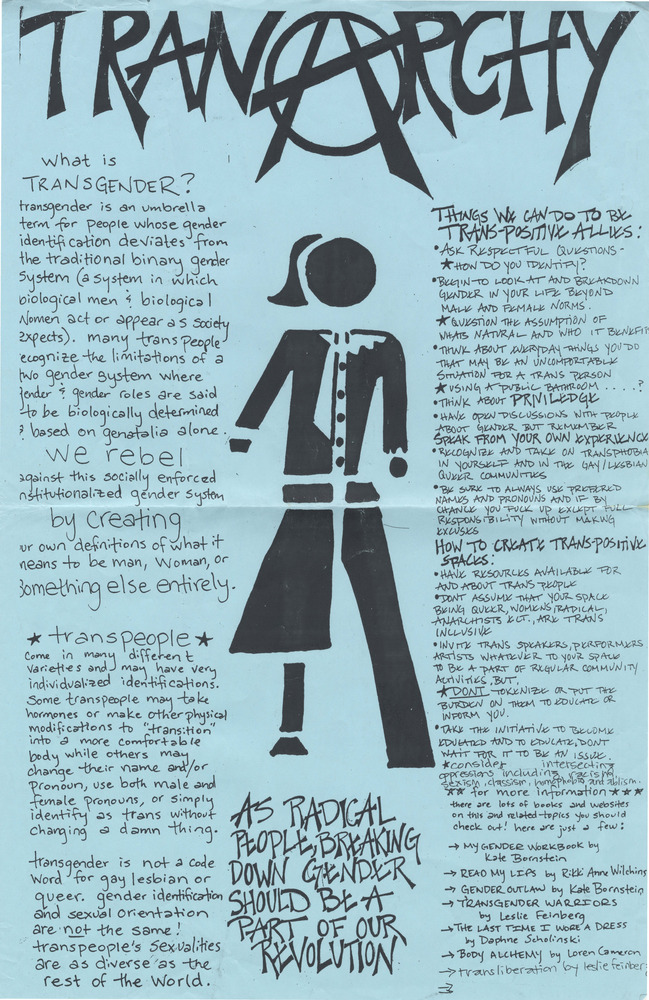 TRANARCHY
What is
TRANSGENDER?
transgender is an umbrella
term for people whose gender
identification deviates from
the traditional binary gender
system (a system in which
biological men & biological
women act or appear as society
expects). many trans people
recognize the limitations of a
two gender system where
gender & gender roles are said
to be biologically determined
& based on genatalia alone.
We rebel
against this socially enforced
institutionalized gender system
by creating
our own definitions of what it
means to be man, woman, or
Something else entirely.
★ transpeople ★
Come in many different
varieties and may have very
individualized identifications.
Some transpeople may take
hormones or make other physical
modifications to "transition"
into a more comfortable
body while others may
change their name and/or
Pronoun, use both male and
female pronouns, or simply
identify as trans without
changing a damn thing.
transgender is not a code
word for gay lesbian or
queer. gender identification
and sexual orientation
are not the same!
transpeople's sexualities
are as diverse as the
rest of the world.
AS RADICAL
PEOPLE, BREAKING
DOWN GENDER
SHOULD BE A
PART OF OUR
REVOLUTION
THINGS WE CAN DO TO BE
TRANS-POSITIVE ALLIES:
• ASK RESPECTFUL QUESTIONS-
★ HOW DO YOU IDENTIFY?
• BEGIN TO LOOK AT AND BREAKDOWN
GENDER IN YOUR LIFE BEYOND
MALE AND FEMALE NORMS.
★ QUESTION THE ASSUMPTION OF
WHATS NATURAL AND WHO IT BENEFITS
• THINK ABOUT EVERYDAY THINGS YOU DO
THAT MAY BE AN UNCOMFORTABLE
SITUATION FOR A TRANS PERSON
★ USING A PUBLIC BATHROOM ....?
• THINK ABOUT PRIVILEDGE
• HAVE OPEN DISCUSSIONS WITH PEOPLE
ABOUT GENDER BUT REMEMBER
SPEAK FROM YOUR OWN EXPERIENCE
• RECOGNIZE AND TAKE ON TRANSPHOBIA
IN YOURSELF AND IN THE GAY/LESBIAN
QUEER COMMUNITIES
• BE SURE TO ALWAYS USE PREFERED
NAMES AND PRONOUNS AND IF BY
CHANCE YOU FUCK UP EXCEPT FULL
RESPONSIBILITY WITHOUT MAKING
EXCUSES
HOW TO CREATE TRANS-POSITIVE
SPACES:
• HAVE RESOURCES AVAILABLE FOR
AND ABOUT TRANS PEOPLE
• DONT ASSUME THAT YOUR SPACE
BEING QUEER, WOMENS, RADICAL,
ANARCHISTS ECT. ARE TRANS
INCLUSIVE
• INVITE TRANS SPEAKERS, PERFORMERS
ARTISTS WHATEVER TO YOUR SPACE
TO BE A PART OF REGULAR COMMUNITY
ACTIVITIES, BUT,
★ DONT TOKENIZE OR PUT THE
BURDEN ON THEM TO EDUCATE OR
INFORM YOU.
• TAKE THE INITIATIVE TO BECOME
EDUCATED AND TO EDUCATE, DONT
WAIT FOR IT TO BE AN ISSUE.
★ consider intersecting
oppressions including racism,
sexism, classism, homophobia and ablism.
★★ for more information ★★★
there are lots of books and websites
on this and related topics you should
check out! here are just a few:
→ MY GENDER WORKBOOK by
Kate Bornstein
→ READ MY LIPS by Rikki Anne Wilchins
→ GENDER OUTLAW by Kate Bornstein
→ TRANSGENDER WARRIORS
by Leslie Feinberg
→ THE LAST TIME I WORE A DRESS
by Daphne Scholinski
→ BODY ALCHEMY by Loren Cameron
→ trans liberation by leslie feinberg
→